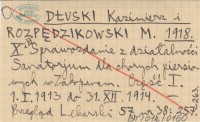 DŁUSKI Kazimierz i
ROZPĘDZIKOWSKI M. 1918.
X Sprawozdanie z działalności
Sanatorjum dla chorych piersio-
wych w Zakopanem. Część I.
I. 1913 do 31. XII. 1914.
Przegląd Lekarski 57 nr 38: 257-
263